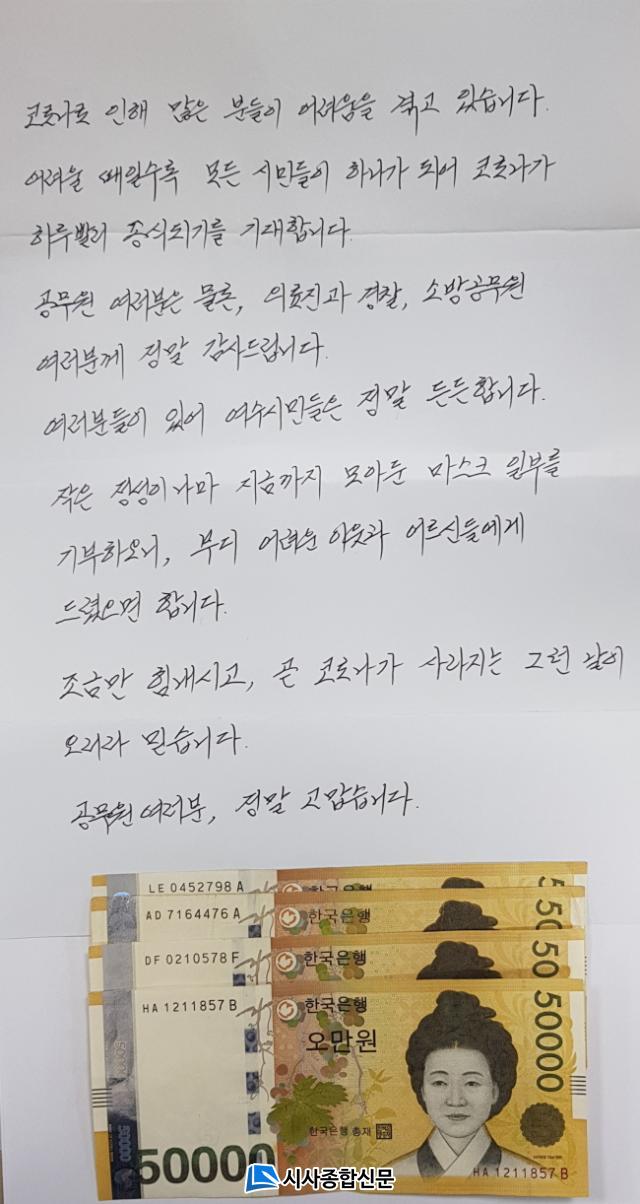 코로나로 인해 많은 분들이 어려움을 겪고 있습니다.
어려울 때일수록 모든 시민들이 하나가 되어 코로나가
하루빨리 종식되기를 기대합니다.
공무원 여러분은 물론, 의료진과 경찰, 소방공무원
여러분께 정말 감사드립니다.
여러분들이 있어 여수시민들은 정말 든든합니다.
작은 정성이나마 지금까지 모아둔 마스크 일부를
기부하오니, 부디 어려운 이웃과 어르신들에게
드렸으면 합니다.
조금만 힘내시고, 곧 코로나가 사라지는 그런 날이
오리라 믿습니다.
공무원 여러분, 정말 고맙습니다.
LE 0452798 A 한국은행 50
AD 7164476 A 한국은행 50
DF 0210578 F 한국은행 50
HA 1211857 B 한국은행 50000
오만원
50000
한국은행 총재
50000
50000
HA 1211857 B
시사종합신문